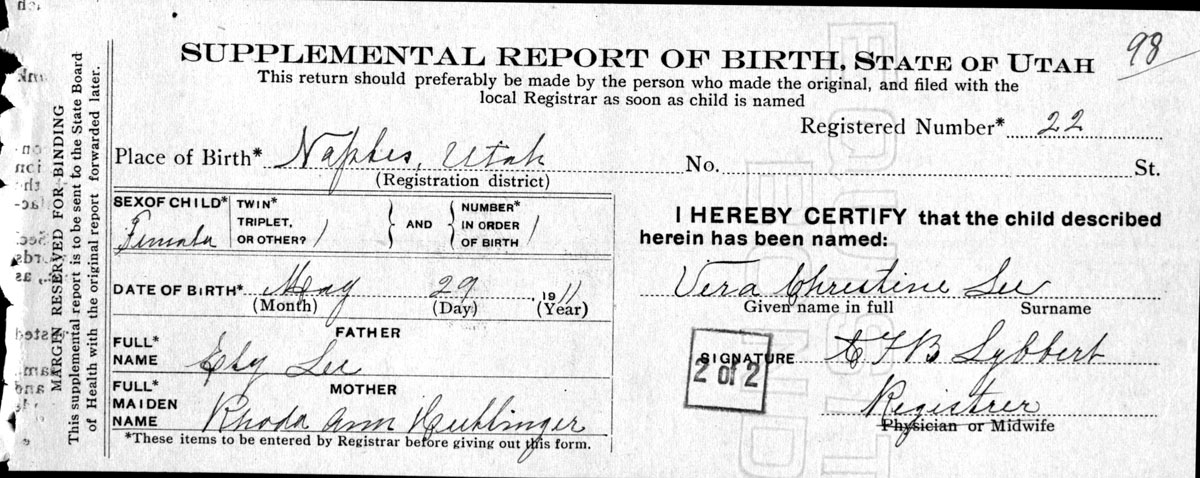 98
SUPPLEMENTAL REPORT OF BIRTH, STATE OF UTAH
This return should preferably be made by the person who made the original, and filed with the
local Registrar as soon as child is named
Registered Number* 22
Place of Birth* Naples, Utah No. St.
(Registration district)
SEX OF CHILD* Female
TWIN* TRIPLET, OR OTHER? /
AND
NUMBER* IN ORDER OF BIRTH /
DATE OF BIRTH* May 29, 1911
(Month) (Day) (Year)
FATHER
FULL* NAME Lee
MOTHER
FULL* MAIDEN NAME Rhoda Ann
*These items to be entered by Registrar before giving out this form.
I HEREBY CERTIFY that the child described
herein has been named:
Vera Christine Lee
Given name in full Surname
SIGNATURE C F B Lybbert
2 of 2
Registrer
Physician or Midwife
MARGIN RESERVED FOR BINDING
This supplemental report is to be sent to the State Board
of Health with the original report forwarded later.